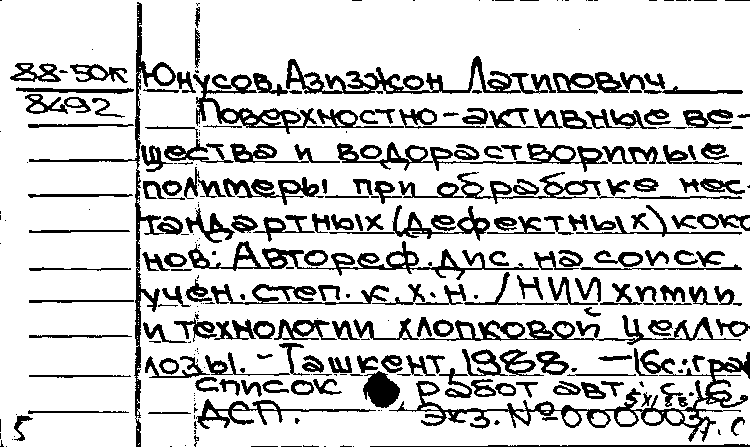 88-50к
8492
Юнусов, Азизжон Латипович.
Поверхностно-активные ве-
щества и водорастворимые
полимеры при обработке нес-
тандартных (дефектных) коко
нов: Автореф. дис. на соиск.
учен. степ. к. х. н. / НИИ химии
и технологии хлопковой целлю
лозы. - Ташкент, 1988. - 16с.: граф
список работ авт.: с. 16
ДСП. Экз. №000003
5